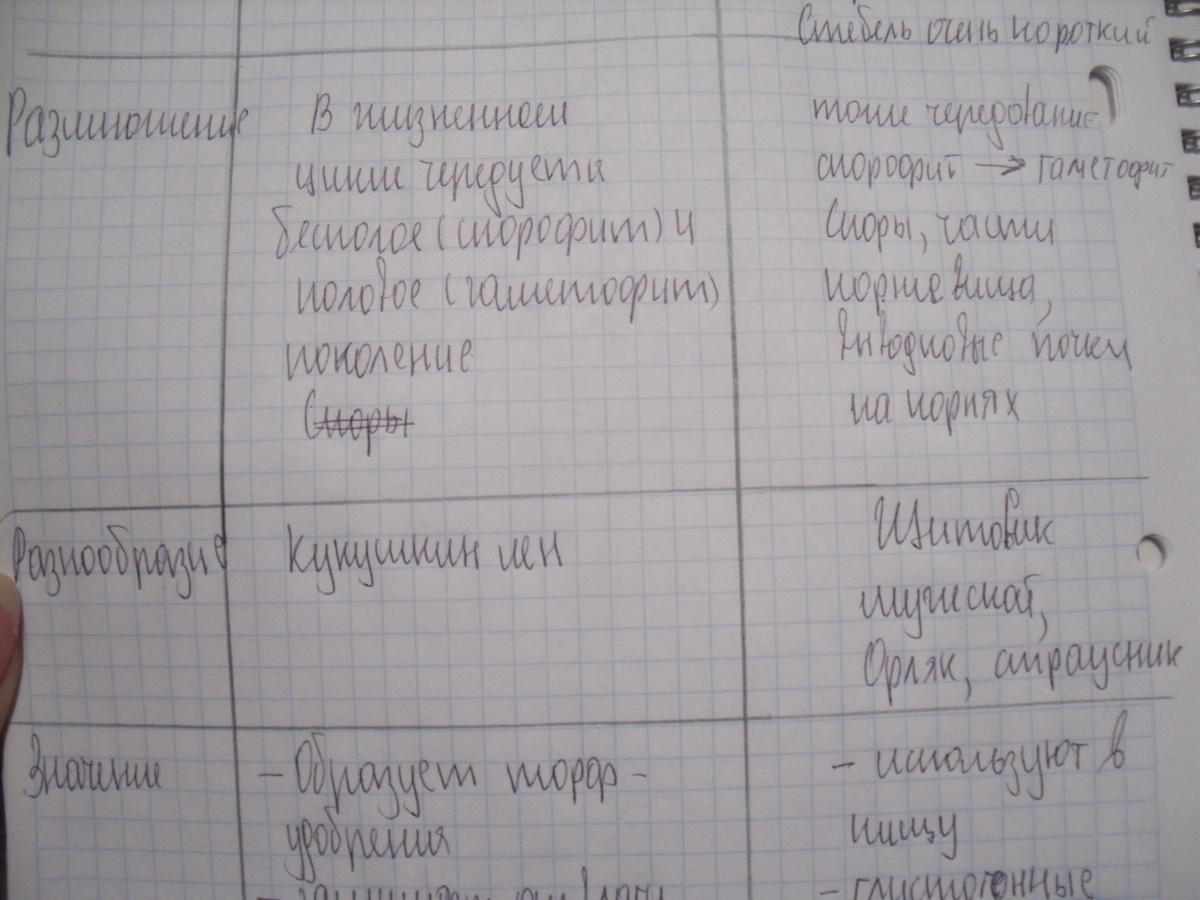 Стебель очень короткий
Размножение
В жизненном
цикле чередуется
бесполое (спорофит) и
половое (гаметофит)
поколение
Споры
тоже чередование
спорофит → гаметофит
Споры, части
корневища,
выводковые почки
на корнях
Разнообразие
Кукушкин лен
Щитовик
мужской,
Орляк, страусник
Значение
- Образует торф -
удобрения
- используют в
пищу
- глистогонные